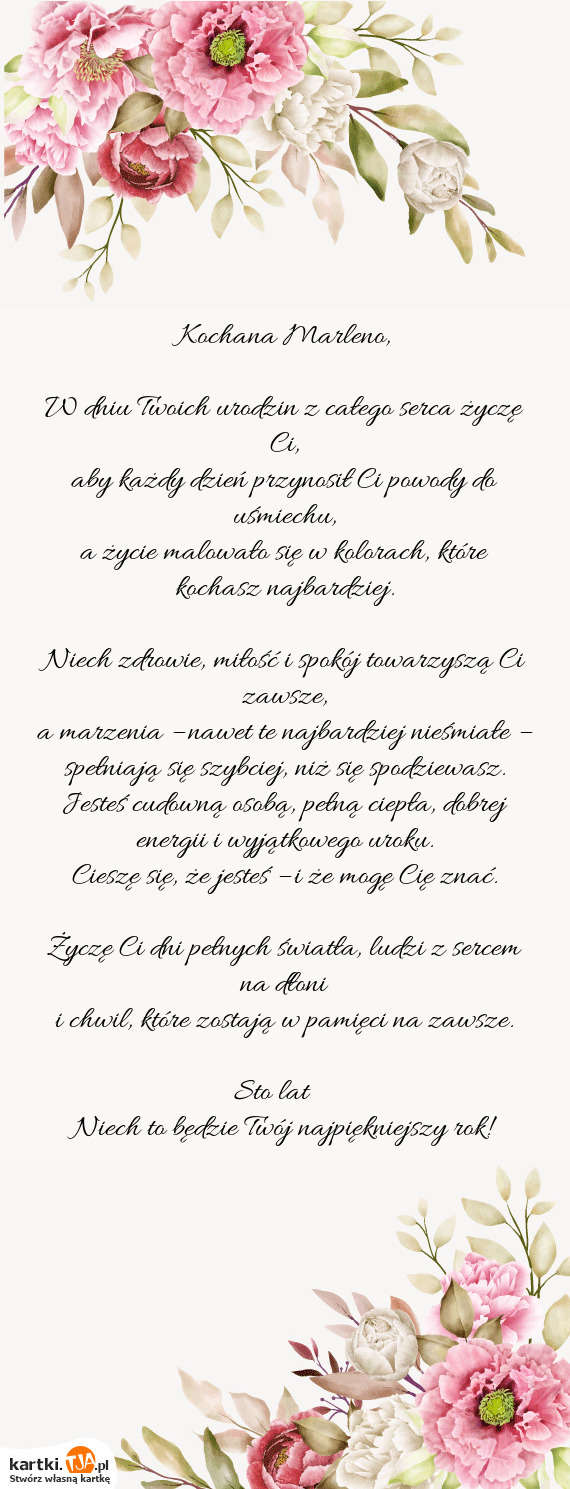 Kochana Marleno,
W dniu Twoich urodzin z całego serca życzę
Ci,
aby każdy dzień przynosił Ci powody do
uśmiechu,
a życie malowało się w kolorach, które
kochasz najbardziej.
Niech zdrowie, miłość i spokój towarzyszą Ci
zawsze,
a marzenia – nawet te najbardziej nieśmiałe –
spełniają się szybciej, niż się spodziewasz.
Jesteś cudowną osobą, pełną ciepła, dobrej
energii i wyjątkowego uroku.
Cieszę się, że jesteś – i że mogę Cię znać.
Życzę Ci dni pełnych światła, ludzi z sercem
na dłoni
i chwil, które zostają w pamięci na zawsze.
Sto lat
Niech to będzie Twój najpiękniejszy rok!
kartki.TJA.pl
Stwórz własną kartkę